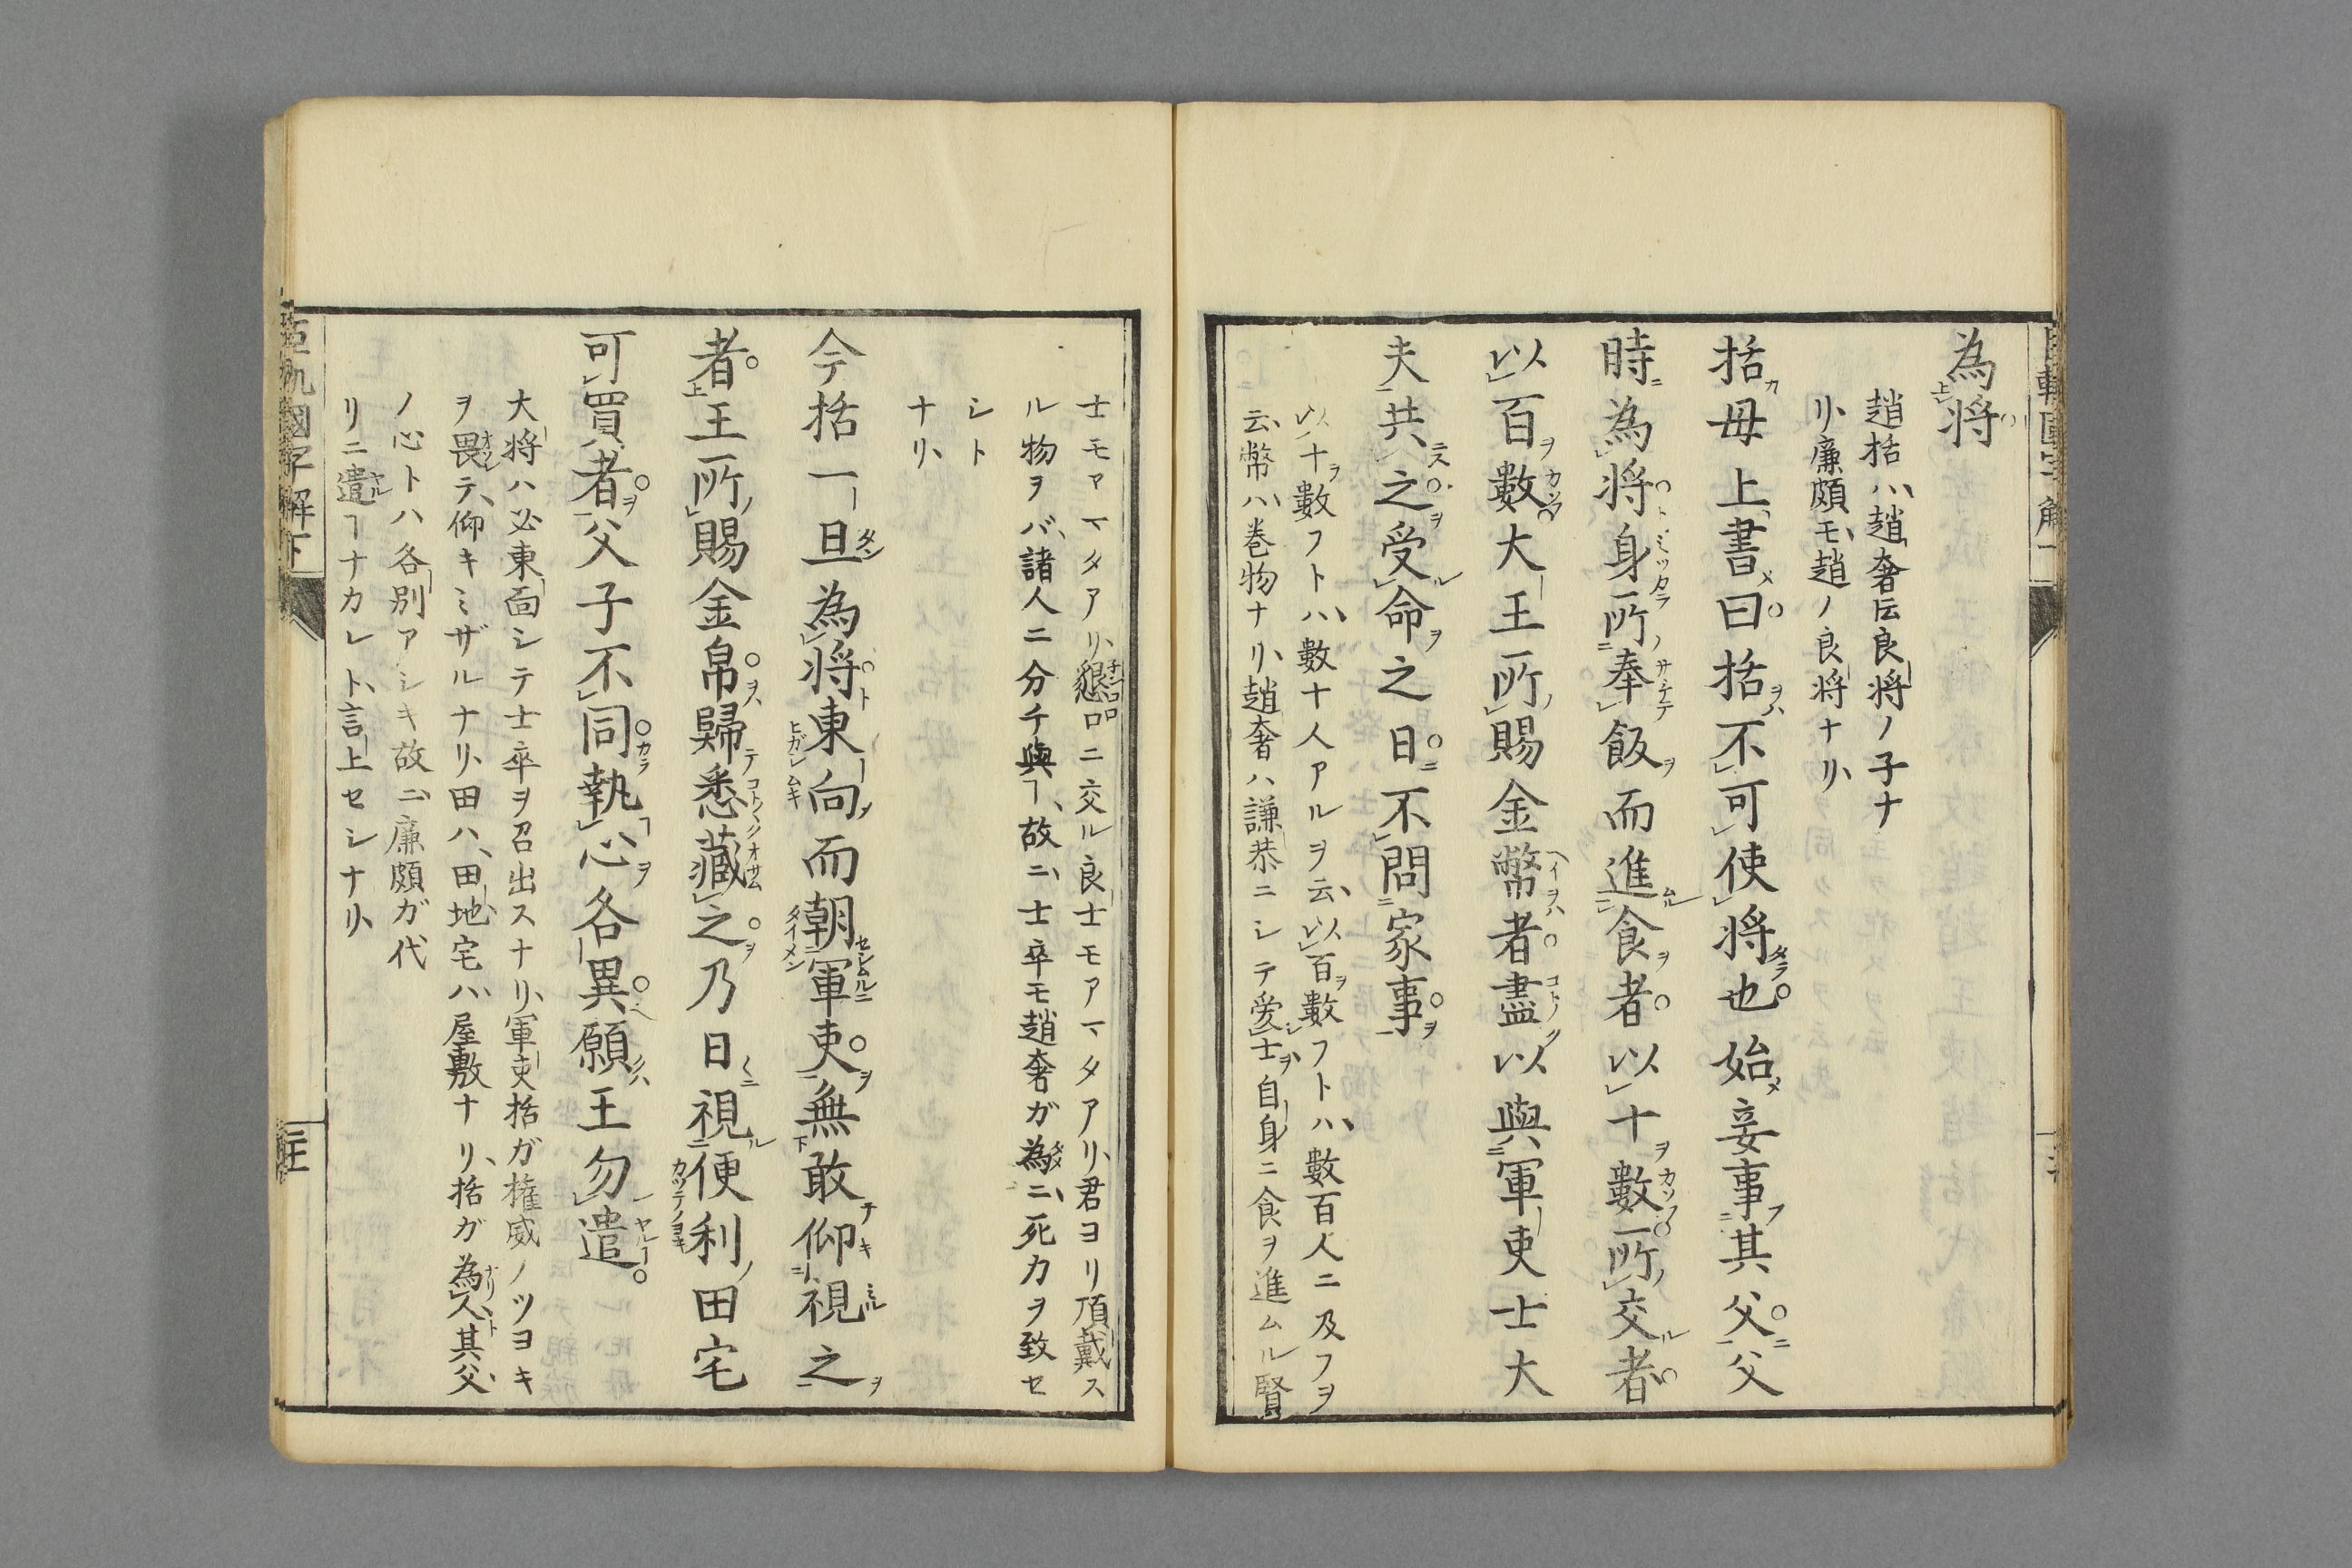 為将
趙括ハ、趙奢伝良将ノ子ナ
リ、廉頗モ、趙ノ良将ナリ、
括母上書曰括不可使将也始妾事其父父
時為将身所奉飯而進食者以十數所交者
以百數大王所賜金幣者盡以與軍吏士大
夫共之受命之日不問家事
以十數フトハ、數十人アルヲ云、以百數フトハ、數百人ニ及フヲ
云、幣ハ、巻物ナリ、趙奢ハ謙恭ニシテ愛士自身ニ食ヲ進ムル賢
士モアマタアリ、懇ロニ交ル良士モアマタアリ、君ヨリ頂戴ス
ル物ヲバ、諸人ニ分チ與ヿ、故ニ、士卒モ趙奢ガ為ニ、死力ヲ致セ
シト
ナリ、
今括一旦為将東向而朝軍吏無敢仰視之
者王所賜金帛歸悉藏之乃日視便利田宅
可買者父子不同執心各異願王勿遣
大将ハ必東面シテ士卒ヲ召出スナリ、軍吏括ガ権威ノツヨキ
ヲ畏テ、仰キミザルナリ、田ハ、田地、宅ハ、屋敷ナリ、括ガ為人其父
ノ心トハ各別アシキ故ニ、廉頗ガ代
リニ遣ヿナカレト、言上セシナリ、
國字解下